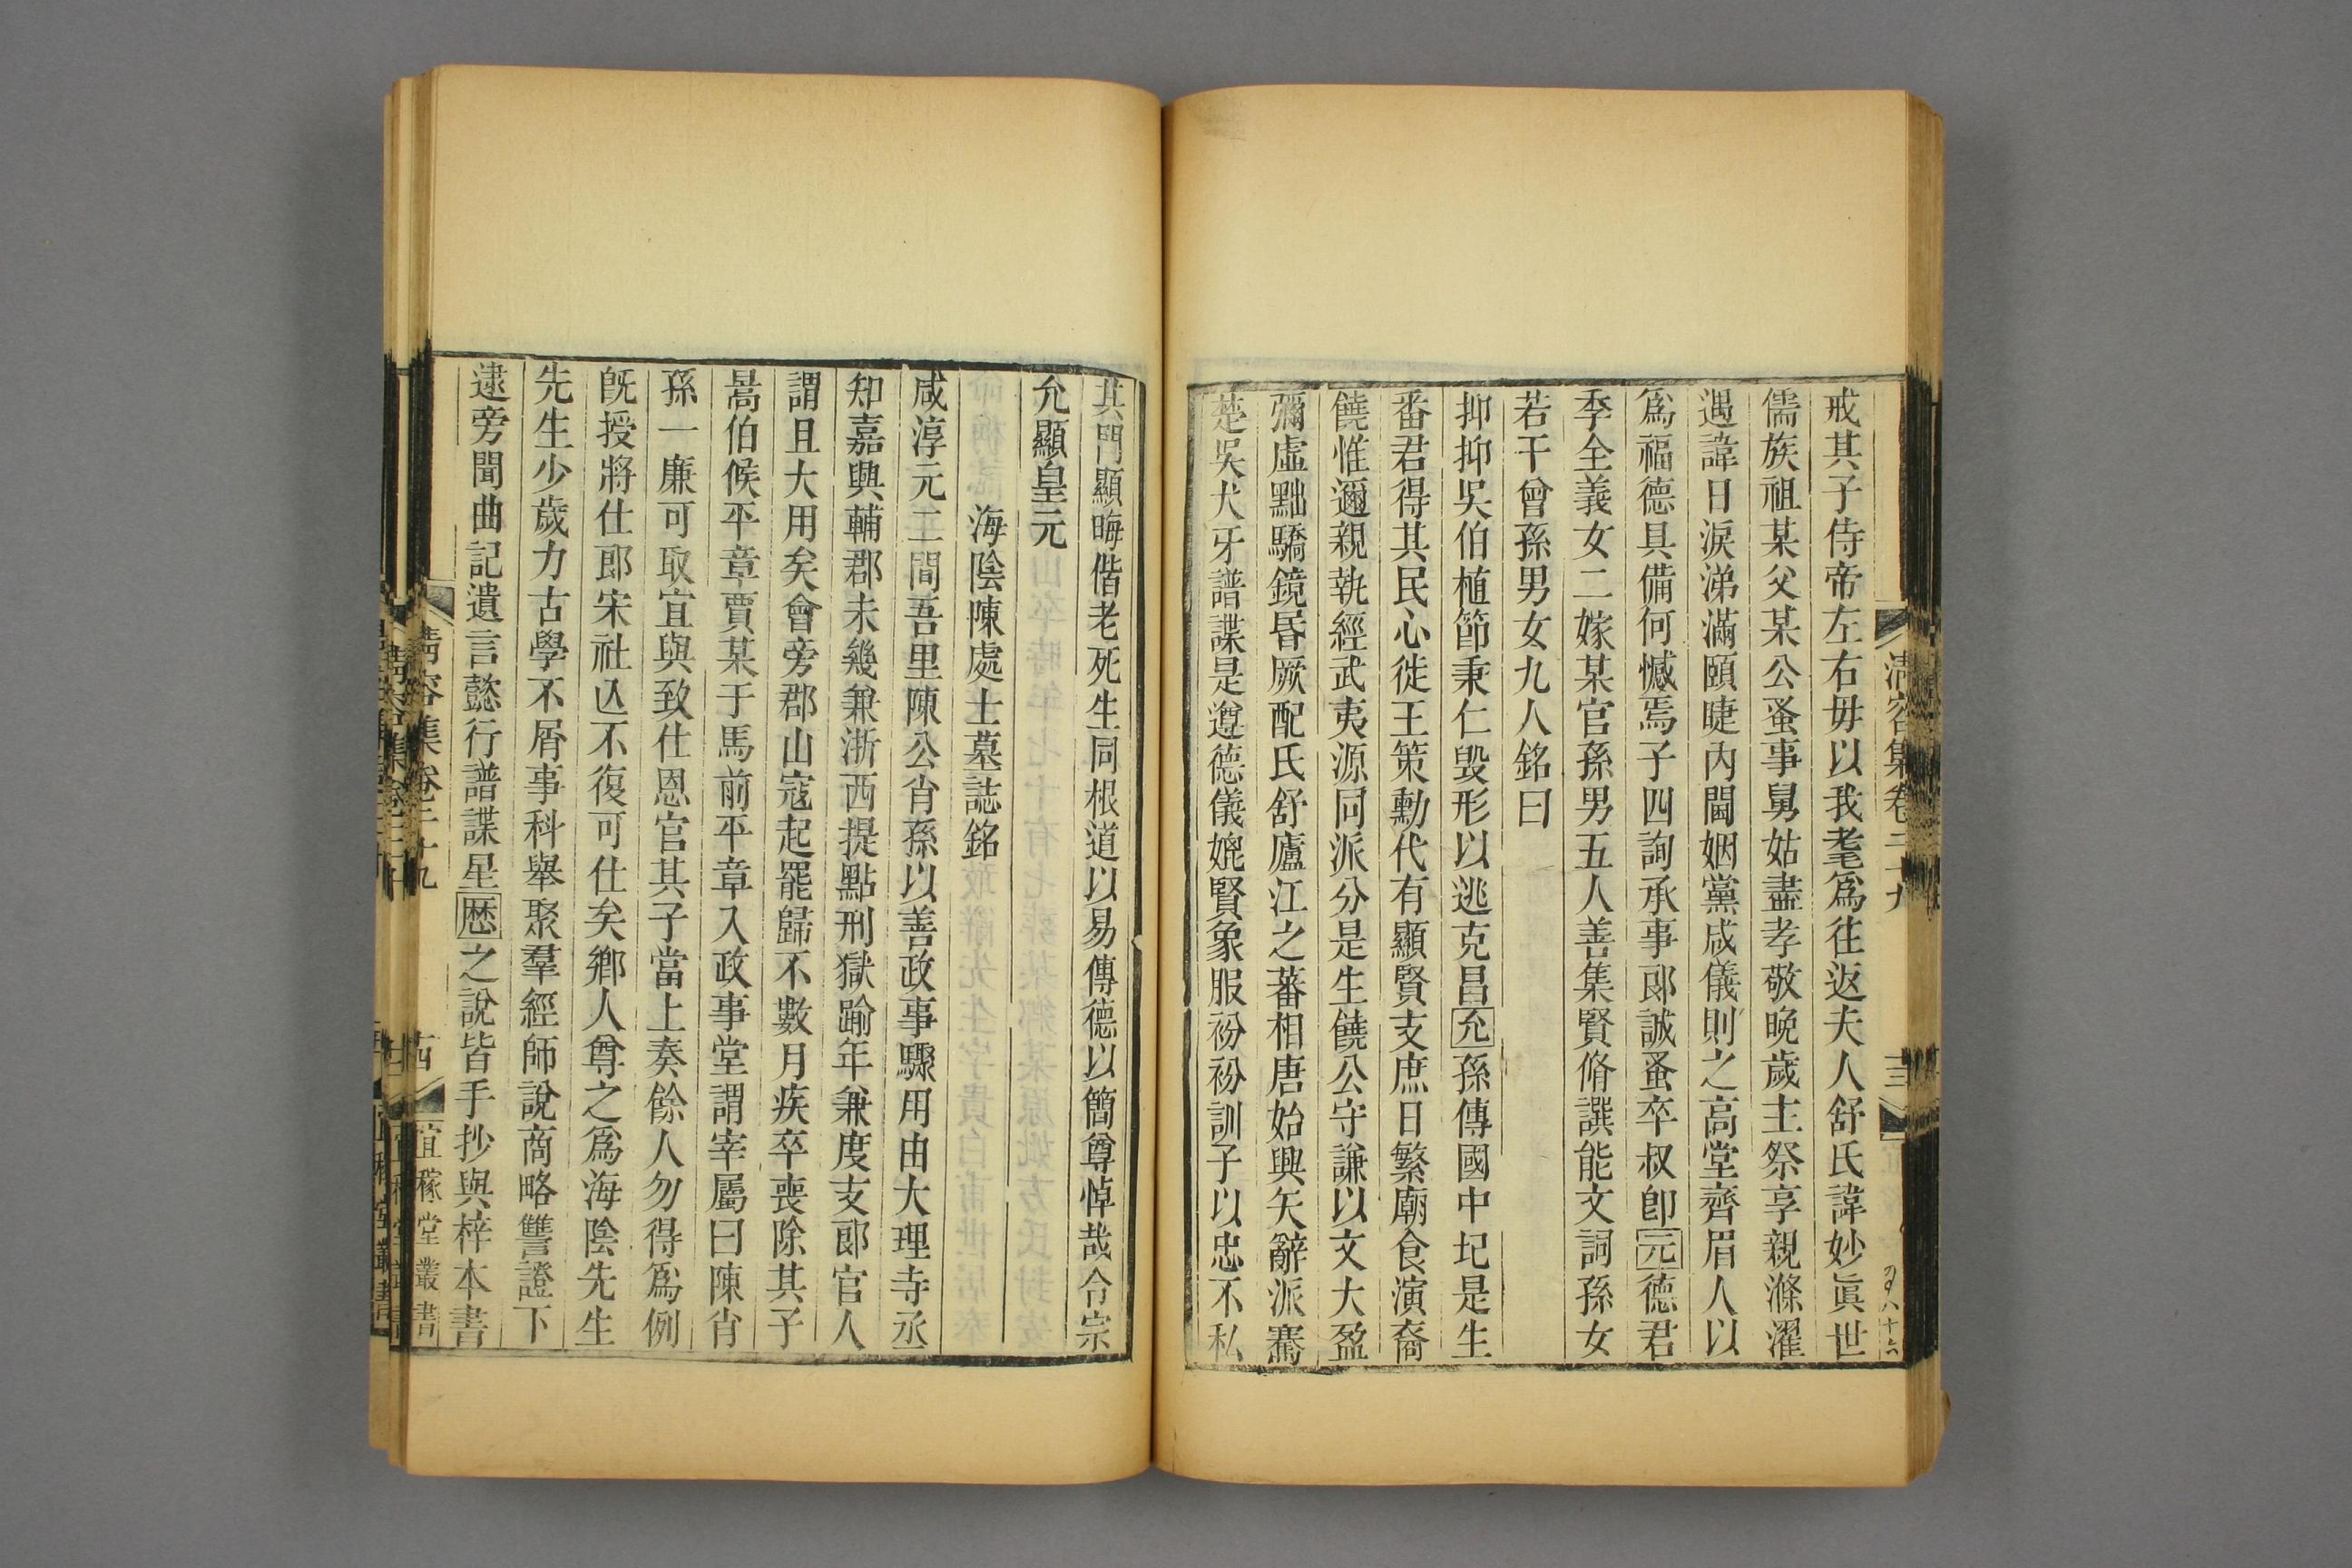 戒其子侍帝左右毋以我耄爲往返夫人舒氏諱妙眞世
儒族祖某父某公蚤事舅姑盡孝敬晚歲主祭享親滌濯
遇諱日淚涕滿頤睫內閫姻黨咸儀則之高堂齊眉人以
爲福德具備何憾焉子四詢承事郞誠蚤卒叔卽元德君
季全義女二嫁某官孫男五人善集賢脩譔能文詞孫女
若干曾孫男女九人銘曰
抑抑吳伯植節秉仁毁形以逃克昌允孫傳國中圮是生
番君得其民心徙王策勳代有顯賢支庶日繁廟食演裔
饒惟邇親執經武夷源同派分是生饒公守謙以文大盈
彌虛黜驕鏡昏厥配氏舒廬江之蕃相唐始興矢辭派騫
楚吳犬牙譜諜是遵德儀媲賢象服衯衯訓子以忠不私
清容集卷二十九
十三
其門顯晦偕老死生同根道以易傳德以簡尊悼哉令宗
允顯皇元
海陰陳處士墓誌銘
咸淳元二間吾里陳公肖孫以善政事驟用由大理寺丞
知嘉興輔郡未幾兼浙西提點刑獄踰年兼度支郞官人
謂且大用矣會旁郡山寇起罷歸不數月疾卒喪除其子
暠伯候平章賈某于馬前平章入政事堂謂宰屬曰陳肖
孫一廉可取宜與致仕恩官其子當上奏餘人勿得爲例
旣授將仕郞宋社亾不復可仕矣鄕人尊之爲海陰先生
先生少歲力古學不屑事科舉聚羣經師說商略讐證下
逮旁聞曲記遺言懿行譜諜星歷之說皆手抄與梓本書
清容集卷二十九
宜稼堂叢書